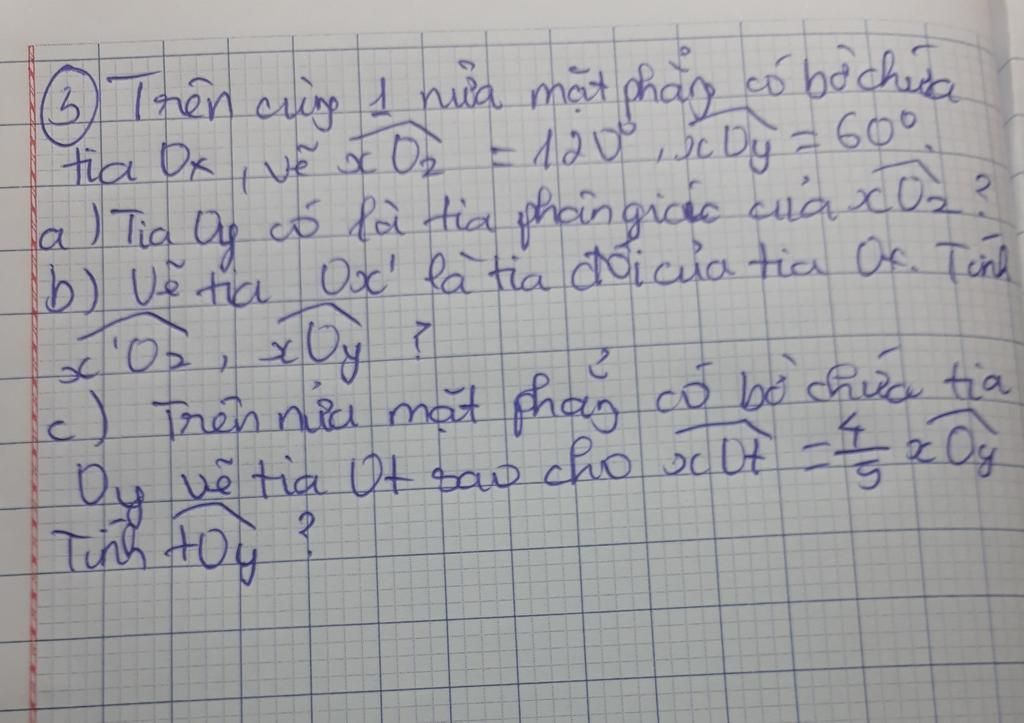 ③ Trên cùng 1 nửa mặt phẳng có bờ chứa
tia Ox, vẽ xOz = 120⁰, xOy = 60⁰.
a) Tia Oy có là tia phân giác của xOz?
b) Vẽ tia Ox' là tia đối của tia Ox. Tính
x'Oz, xOy ?
c) Trên nửa mặt phẳng có bờ chứa tia
Oy vẽ tia Ot sao cho xOt = 4/5 xOy
Tính tOy ?